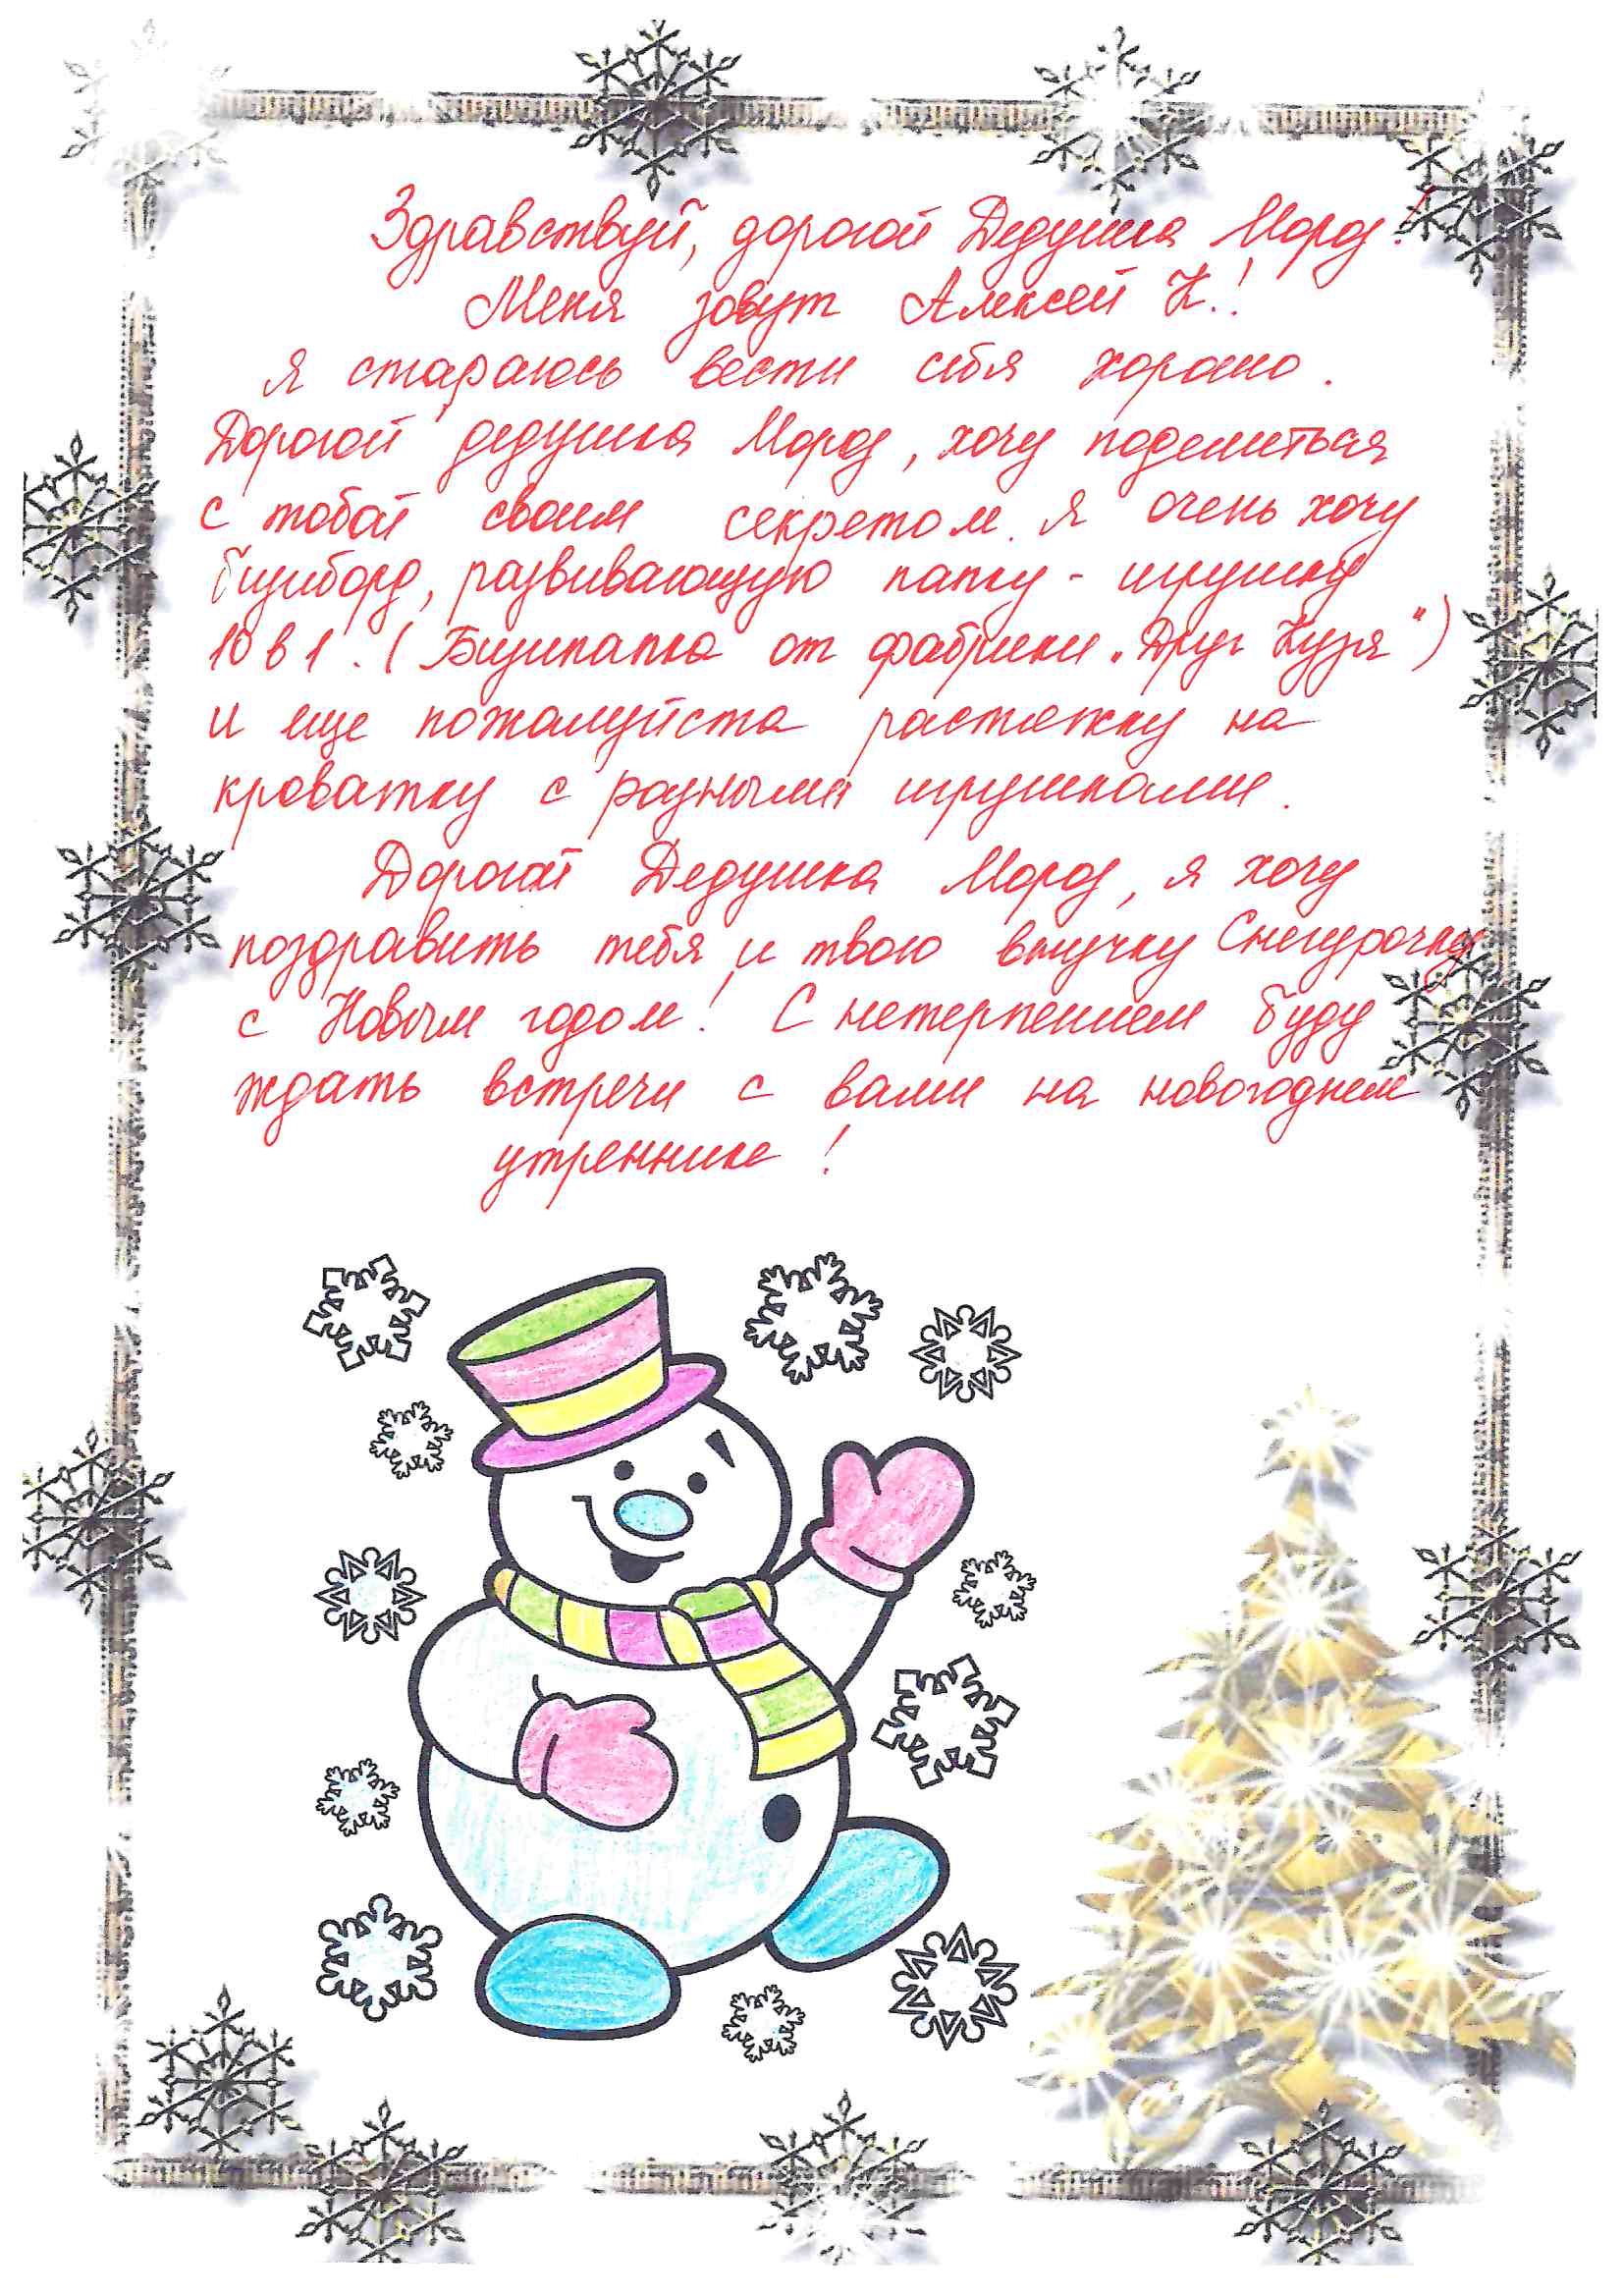 Здравствуй, дорогой Дедушка Мороз!
Меня зовут Алексей К.!
Я стараюсь вести себя хорошо.
Дорогой дедушка Мороз, хочу поделиться
с тобой своим секретом. Я очень хочу
бизиборд, развивающую папку - игрушку
10 в 1. (Бизипапка от фабрики „Друг Кузя")
и еще пожалуйста растяжку на
кроватку с разными игрушками.
Дорогой Дедушка Мороз, я хочу
поздравить тебя и твою внучку Снегурочку
с Новым годом! С нетерпением буду
ждать встречи с вами на новогоднем
утреннике!